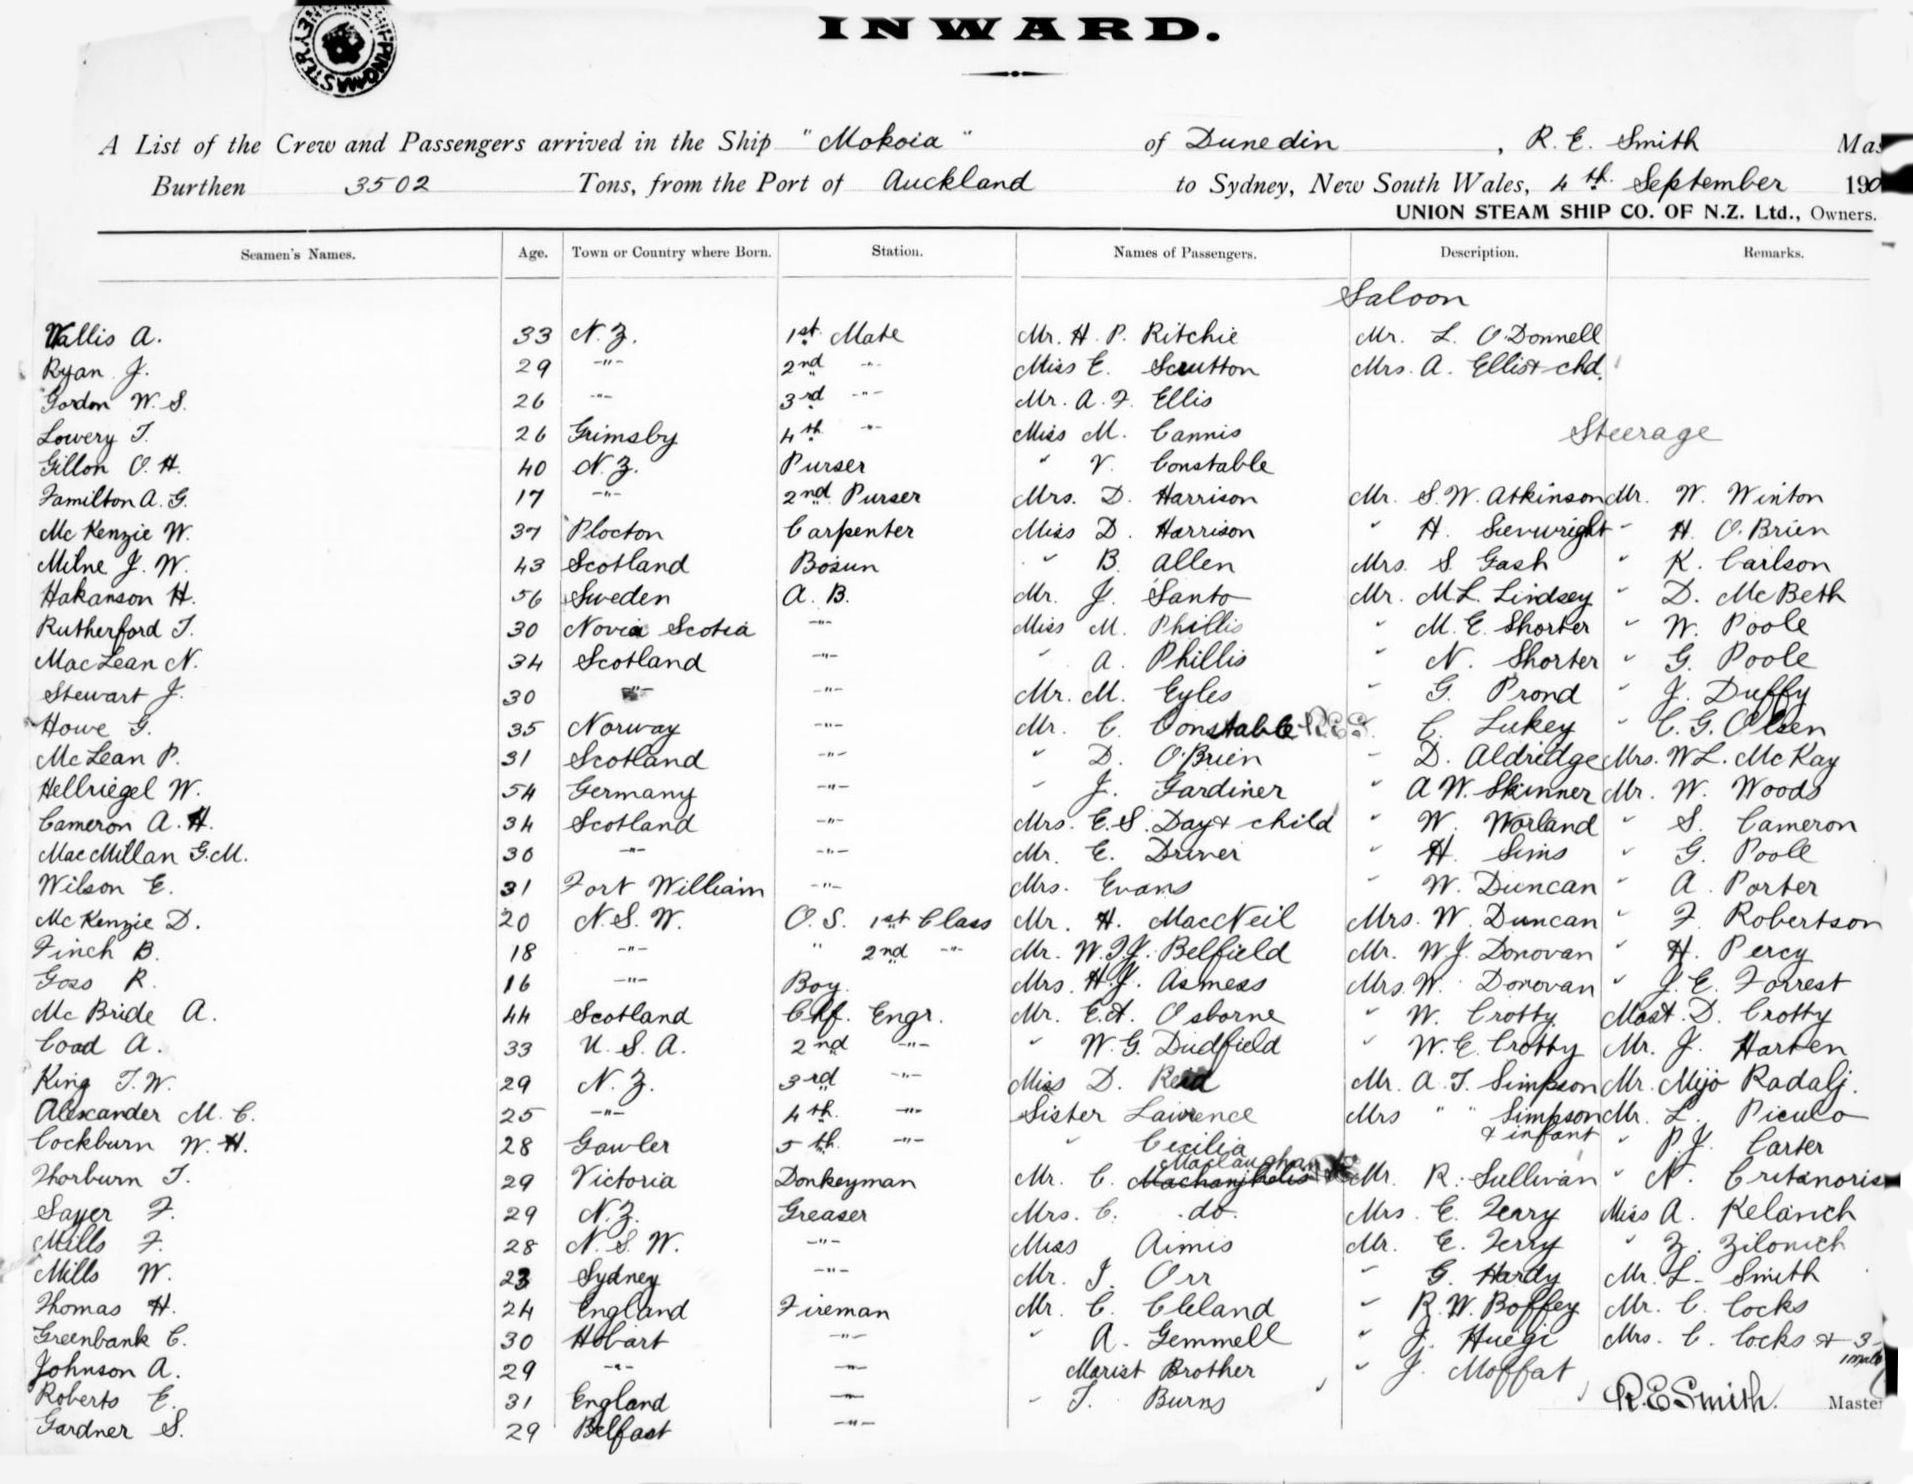 INWARD.
A List of the Crew and Passengers arrived in the Ship "Mokoia" of Dunedin, R. E. Smith Mas
Burthen 3502 Tons, from the Port of Auckland to Sydney, New South Wales, 4th September 190
UNION STEAM SHIP CO. OF N.Z. Ltd., Owners.
Seamen's Names. Age. Town or Country where Born. Station. Names of Passengers. Description. Remarks.
Saloon
Wallis A. 33 N.Z. 1st Mate Mr. H. P. Ritchie Mr. L. O'Donnell
Ryan J. 29 -"- 2nd -"- Miss E. Scrutton Mrs. A. Ellis + chd.
Gordon W. S. 26 -"- 3rd -"- Mr. A. F. Ellis
Lowery T. 26 Grimsby 4th -"- Miss M. Cannis Steerage
Gillon O. H. 40 N.Z. Purser " V. Constable
Familton A. G. 17 -"- 2nd Purser Mrs. D. Harrison Mr. S. W. Atkinson Mr. W. Winton
McKenzie W. 37 Plocton Carpenter Miss D. Harrison " H. Sievwright " H. O'Brien
Milne J. W. 43 Scotland Bosun " B. Allen Mrs. S. Gash " K. Carlson
Hakanson H. 56 Sweden A. B. Mr. J. Santo Mr. M L. Lindsey " D. McBeth
Rutherford T. 30 Novia Scotia -"- Miss M. Phillis " M. E. Shorter " W. Poole
MacLean N. 34 Scotland -"- " A. Phillis " N. Shorter " G. Poole
Stewart J. 30 -"- -"- Mr. M. Eyles " G. Prond " J. Duffy
Howe G. 35 Norway -"- Mr. C. Constable R.E.S. C. Lukey " C. G. Olsen
McLean P. 31 Scotland -"- " D. O'Brien " D. Aldridge Mrs. W L. McKay
Hellriegel W. 54 Germany -"- " J. Gardiner " A W. Skinner Mr. W. Woods
Cameron A. H. 34 Scotland -"- Mrs. E. S. Day + child " W. Worland " S. Cameron
MacMillan G. M. 30 -"- -"- Mr. E. Driver " H. Sims " G. Poole
Wilson E. 31 Fort William -"- Mrs. Evans " W. Duncan " A. Porter
McKenzie D. 20 N. S. W. O. S. 1st Class Mr. H. MacNeil Mrs. W. Duncan " F. Robertson
Finch B. 18 -"- " 2nd -"- Mr. W. T. J. Belfield Mr. W J. Donovan " H. Percy
Goss R. 16 -"- Boy. Mrs. H. J. Asmess Mrs. W. Donovan " J. E. Forrest
McBride A. 44 Scotland Chf. Engr. Mr. E. A. Osborne " W. Crotty Mast. D. Crotty
Coad A. 33 U. S. A. 2nd -"- " W. G. Dudfield " W. E. Crotty Mr. J. Harten
King T. W. 29 N. Z. 3rd -"- Miss D. Reid Mr. A. T. Simpson Mr. Mijo Radalj.
Alexander M. C. 25 -"- 4th -"- Sister Lawrence Mrs " " Simpson Mr. L. Piculo
+ infant
Cockburn W. H. 28 Gawler 5th -"- " Cecilia " P. J. Carter
Maclaughan
Thorburn T. 29 Victoria Donkeyman Mr. C. Mr. R. Sullivan " N.
Sayer F. 29 N.Z. Greaser Mrs. C. do. Mrs. E. Terry Miss A. Kelanch
Mills F. 28 N. S. W. -"- Miss Aimis Mr. E. Terry " Z. Zilonich
Mills W. 23 Sydney -"- Mr. J. Orr " G. Hardy Mr. L. Smith
Thomas H. 24 England Fireman Mr. C. Cleland " R. W. Boffey Mr. C. Cocks
Greenbank C. 30 Hobart -"- " A. Gemmell " J. Huegi Mrs. C. Cocks + 3
Johnson A. 29 -"- -"- Marist Brother " J. Moffat
Roberts E. 31 England -"- " T. Burns R. E Smith. Master
Gardner S. 29 Belfast -"-